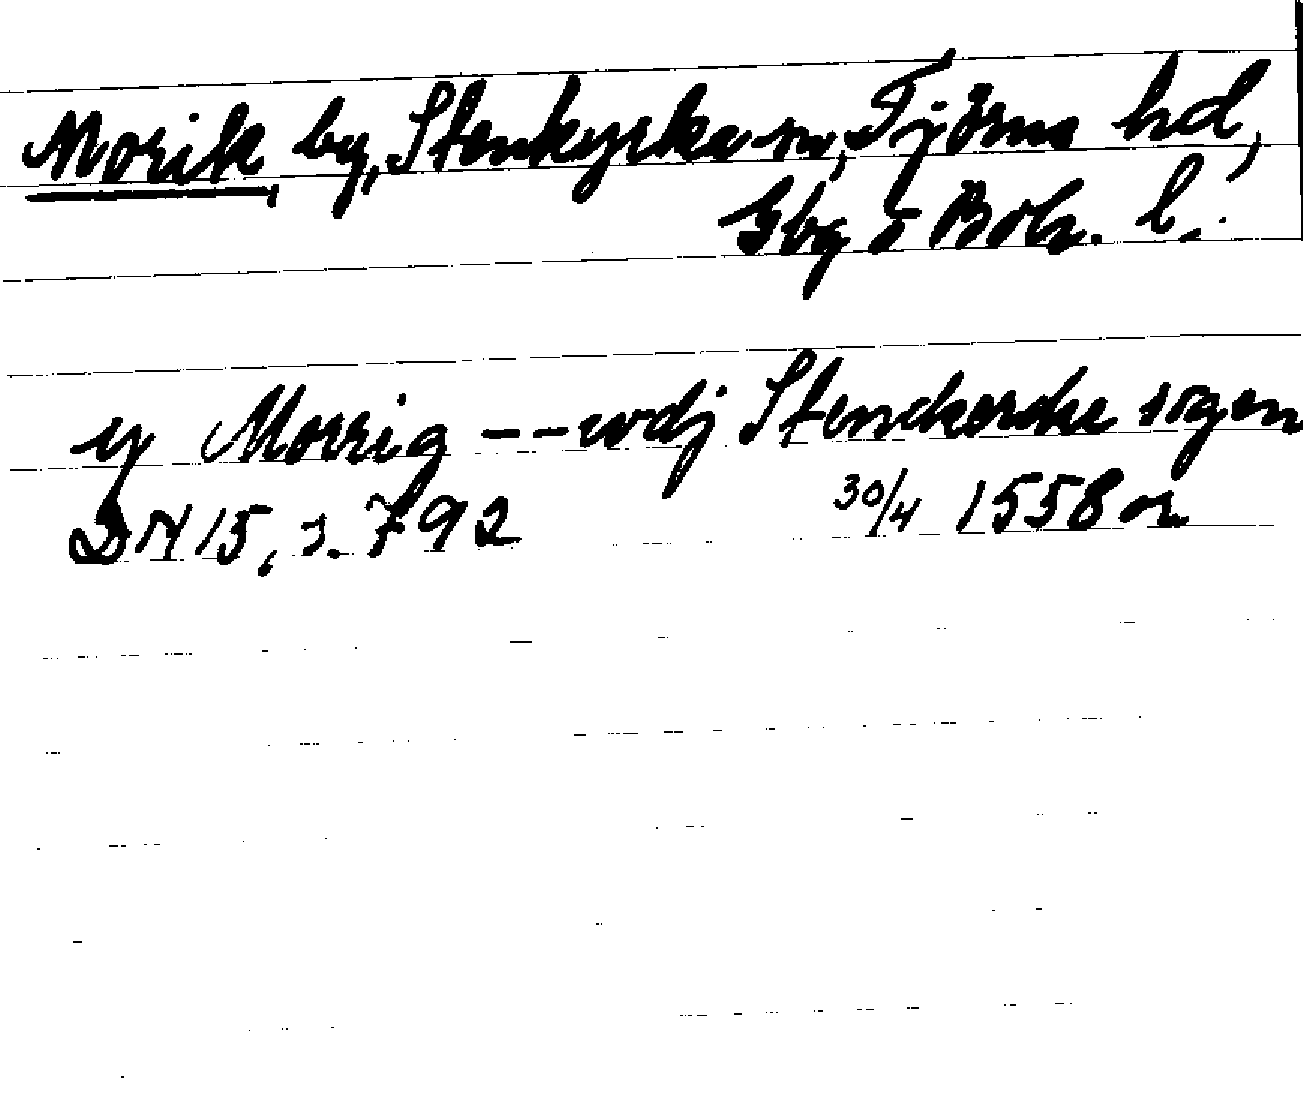 Morik, by, Stenkyrka sn, Tjörns hd,
Gbg o Boh. l.
ij Morrig -- wdj Stenckercke sogen
DN 15, s. 792 30/4 1558 or